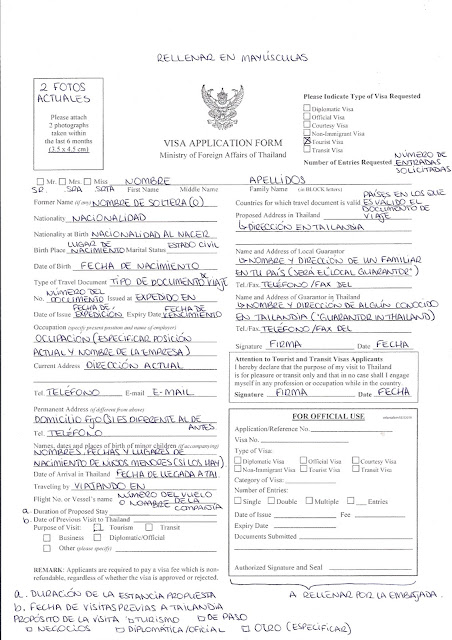 RELLENAR EN MAYÚSCULAS
2 FOTOS
ACTUALES
Please attach
2 photographs
taken within
the last 6 months
(3.5 x 4.5 cm)
VISA APPLICATION FORM
Ministry of Foreign Affairs of Thailand
Please Indicate Type of Visa Requested
Diplomatic Visa
Official Visa
Courtesy Visa
Non-Immigrant Visa
Tourist Visa
Transit Visa
Number of Entries Requested NÚMERO DE ENTRADAS SOLICITADAS
Mr. Mrs. Miss NOMBRE APELLIDOS
SR. SRA SRTA First Name Middle Name Family Name (in BLOCK letters)
Former Name (if any) NOMBRE DE SOLTERA(O)
Nationality NACIONALIDAD
Nationality at Birth NACIONALIDAD AL NACER
Birth Place LUGAR DE NACIMIENTO Marital Status ESTADO CIVIL
Date of Birth FECHA DE NACIMIENTO
Type of Travel Document TIPO DE DOCUMENTO DE VIAJE
No. NÚMERO DEL DOCUMENTO Issued at EXPEDIDO EN
Date of Issue FECHA DE EXPEDICIÓN Expiry Date FECHA DE VENCIMIENTO
Occupation (specify present position and name of employer)
OCUPACIÓN (ESPECIFICAR POSICIÓN
ACTUAL Y NOMBRE DE LA EMPRESA)
Current Address DIRECCIÓN ACTUAL
Tel. TELÉFONO E-mail E-MAIL
Permanent Address (if different from above)
DOMICILIO FIJO (SI ES DIFERENTE AL DE ANTES
Tel. TELÉFONO
Names, dates and places of birth of minor children (if accompanying)
NOMBRES, FECHAS Y LUGARES DE
NACIMIENTO DE NIÑOS MENORES (SI LOS HAY)
Date of Arrival in Thailand FECHA DE LLEGADA A TAI.
Traveling by VIAJANDO EN
Flight No. or Vessel's name NÚMERO DEL VUELO O NOMBRE DE LA COMPAÑÍA
a. Duration of Proposed Stay
b. Date of Previous Visit to Thailand
Purpose of Visit: Tourism Transit
Business Diplomatic/Official
Other (please specify)
REMARK: Applicants are required to pay a visa fee which is non-
refundable, regardless of whether the visa is approved or rejected.
Countries for which travel document is valid PAÍSES EN LOS QUE ES VÁLIDO EL DOCUMENTO DE VIAJE
Proposed Address in Thailand
DIRECCIÓN EN TAILANDIA
Name and Address of Local Guarantor
NOMBRE Y DIRECCIÓN DE UN FAMILIAR
EN TU PAÍS (SERÁ EL "LOCAL GUARANTOR")
Tel./Fax. TELÉFONO/FAX DEL
Name and Address of Guarantor in Thailand
NOMBRE Y DIRECCIÓN DE ALGÚN CONOCIDO
EN TAILANDIA ("GUARANTOR IN THAILAND)
Tel./Fax. TELÉFONO/FAX DEL
Signature FIRMA Date FECHA
Attention to Tourist and Transit Visas Applicants
I hereby declare that the purpose of my visit to Thailand
is for pleasure or transit only and that in no case shall I engage
myself in any profession or occupation while in the country.
Signature FIRMA Date FECHA
FOR OFFICIAL USE
Application/Reference No.
Visa No.
Type of Visa:
Diplomatic Visa Official Visa Courtesy Visa
Non-Immigrant Visa Tourist Visa Transit Visa
Category of Visa:
Number of Entries:
Single Double Multiple Entries
Date of Issue Fee
Expiry Date
Documents Submitted
Authorized Signature and Seal
A RELLENAR POR LA EMBAJADA.
a. DURACIÓN DE LA ESTANCIA PROPUESTA
b. FECHA DE VISITAS PREVIAS A TAILANDIA
PROPÓSITO DE LA VISITA TURISMO DE PASO
NEGOCIOS DIPLOMÁTICA/OFICIAL OTRO (ESPECIFICAR)